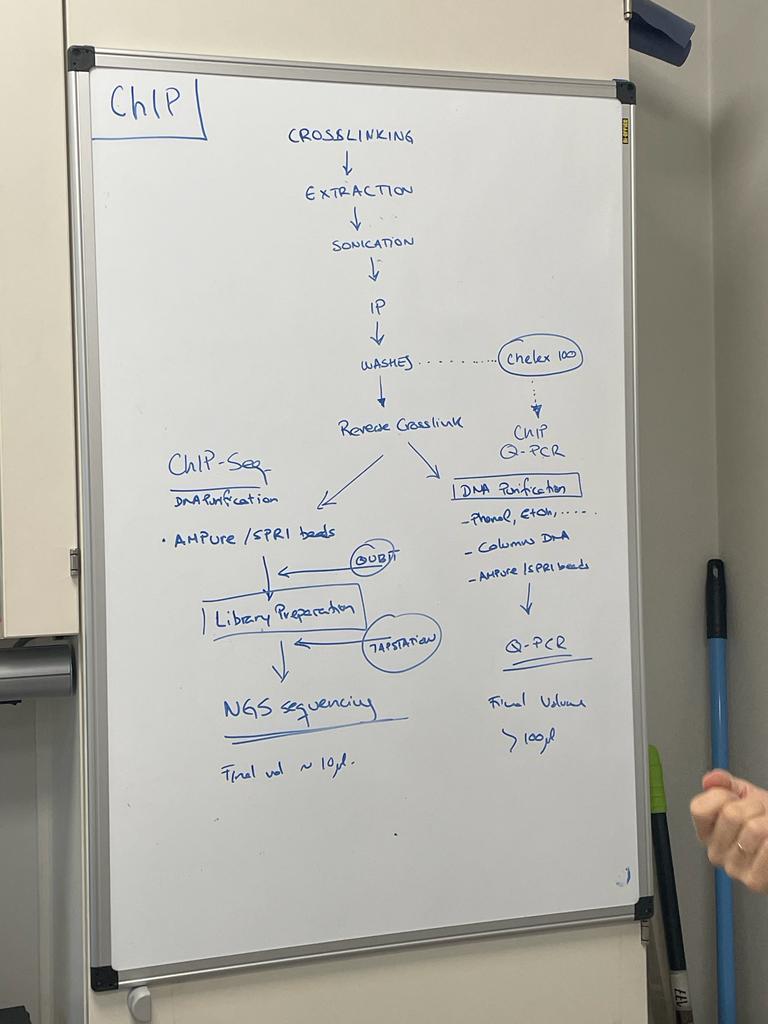 ChIP
CROSSLINKING
EXTRACTION
SONICATION
IP
WASHES ........ Chelex 100
Reverse Crosslink
ChIP
Q-PCR
ChIP-Seq
DNA Purification
• AMPure / SPRI beads
QUBIT
Library Preparation
TAPSTATION
NGS sequencing
Final vol ~ 10µl.
DNA Purification
- Phenol, EtOH, .....
- Columns DNA
- AMPure / SPRI beads
Q-PCR
Final Volume
> 100µl